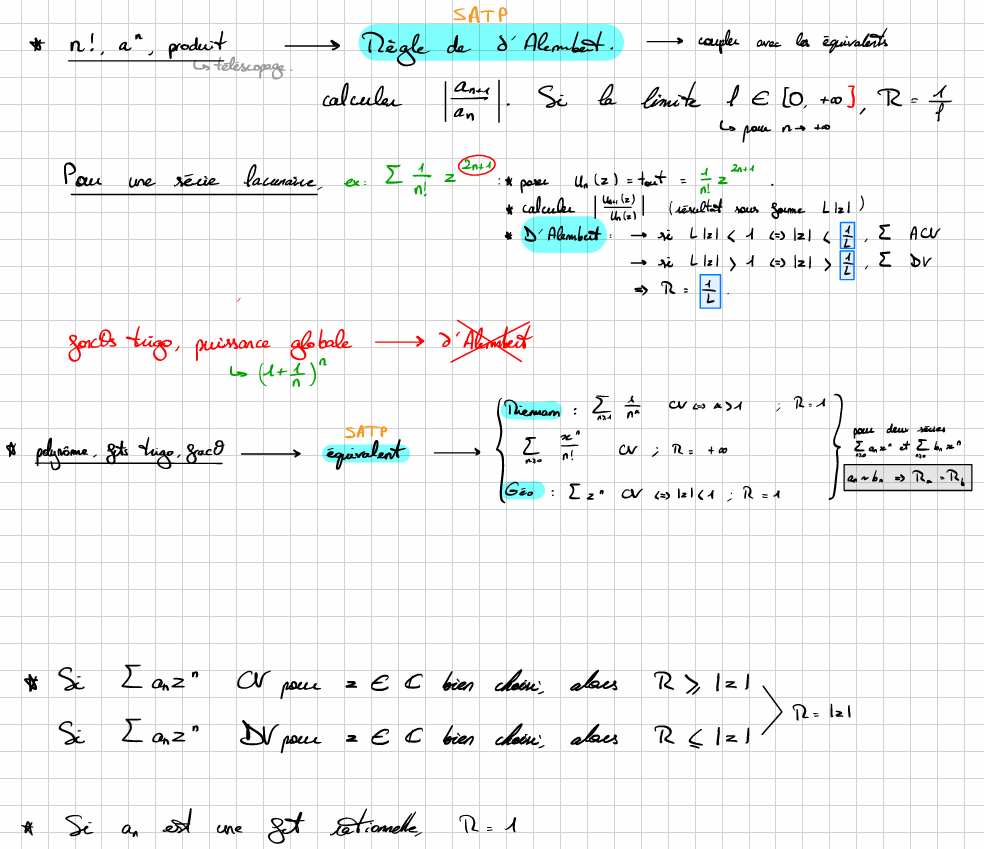 SATP
* n!, a^n, produit → Règle de d'Alembert. → coupler avec les équivalents
↳ télescopage.
calculer |a_{n+1}/a_n|. Si la limite l ∈ [0, +∞], R = 1/l
↳ pour n → +∞
Pour une série lacunaire, ex: Σ 1/n! z^{2n+1} : * poser u_n(z) = tout = 1/n! z^{2n+1}.
* calculer |u_{n+1}(z)/u_n(z)| (résultat sous forme L|z|)
* D'Alembert: → si L|z| < 1 ⇔ |z| < 1/L, Σ ACV
→ si L|z| > 1 ⇔ |z| > 1/L, Σ DV
⇒ R = 1/L.
puissance globale → d'Alembert
↳ (1+1/n)^n
Riemann : Σ_{n≥1} 1/n^α CV ⇔ α>1 ; R=1
SATP
* polynôme, fcts trigo, → équivalent → Σ_{n≥0} x^n/n! CV ; R = +∞
Géo : Σ z^n CV ⇔ |z|<1 ; R = 1
pour deux séries
Σ_{n≥0} a_n x^n et Σ_{n≥0} b_n x^n
a_n ~ b_n ⇒ R_a = R_b
* Si Σ a_n z^n CV pour z ∈ C bien choisi, alors R ⩾ |z|
Si Σ a_n z^n DV pour z ∈ C bien choisi, alors R ⩽ |z|
R = |z|
* Si a_n est une fct rationnelle, R = 1